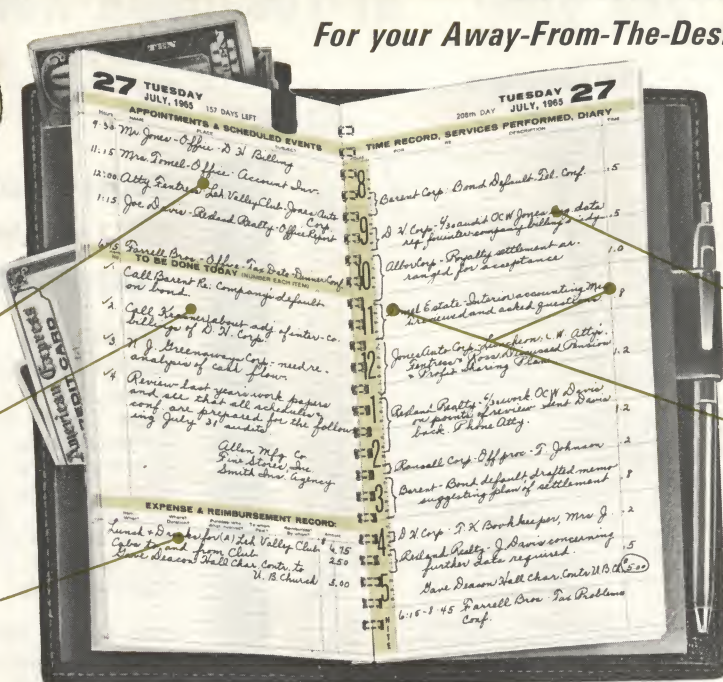 For your Away-From-The-Des
TEN
27 TUESDAY
JULY, 1965 157 DAYS LEFT
APPOINTMENTS & SCHEDULED EVENTS
HOUR NAME PLACE SUBJECT
9:30 Mr. Jones-Office-D H Billing
11:15 Mrs. Tomel-Office-Account Inv.
12:00 Atty Fentress Leh Valley Club-Jones Auto
Corp.
1:15 Joe Davis-Redland Realty-Office Report
6:15 Farrell Bros-Office-Tax Data-Dinner Conf
TO BE DONE TODAY (NUMBER EACH ITEM)
√1 Call Barent Re: Company's default
on bond.
√2 Call about adj of inter-co.
billings of D. H. Corp.
√3 N. J. Greenaways Corp-need re-
analysis of cash flow.
√4 Review last years work papers
and see that all schedules &
conf. are prepared for the follow
ing July 31 audits
Allen Mfg Co
Fine Stores, Inc.
Smith Ins. Agency
EXPENSE & REIMBURSEMENT RECORD:
Lunch & Drinks for (2) Leh Valley Club 6.75
Cabs to and from Club 2.50
Gave Deacon Hall Char. Contr. to
U. B. Church 5.00
American Express
CREDIT CARD
TUESDAY 27
208th DAY JULY, 1965
TIME RECORD, SERVICES PERFORMED, DIARY
FOR RE DESCRIPTION TIME
8
Barent Corp-Bond Default-Tel. Conf. .5
9
D H Corp-6/30 audit OCW Jones data
re inter-company billing's .5
10
Albor Corp-Royalty settlement ar-
ranged for acceptance 1.0
11
Estate-Interim accounting
reviewed and asked questions .8
12
Jones Auto Corp. Luncheon c. W. Attys.
Fentress & Ross Discussed Pension
& Profit Sharing Plan 1.2
1
Redland Realty-6/30 work OCW Davis
on points of review sent Davis
back. Phone Atty. 1.2
2
Russell Corp-Off proc-T. Johnson .2
3
Barent-Bond default drafted memo
suggesting plan of settlement .8
4
D H Corp-T. K Bookkeeper, Mrs J. .2
Redland Realty-J. Davis concerning
further data required. .5
5
Gave Deacon Hall Char. Contr U B Ch $5.00
NITE
6:15-8:45 Farrell Bros-Tax Problems
Conf.